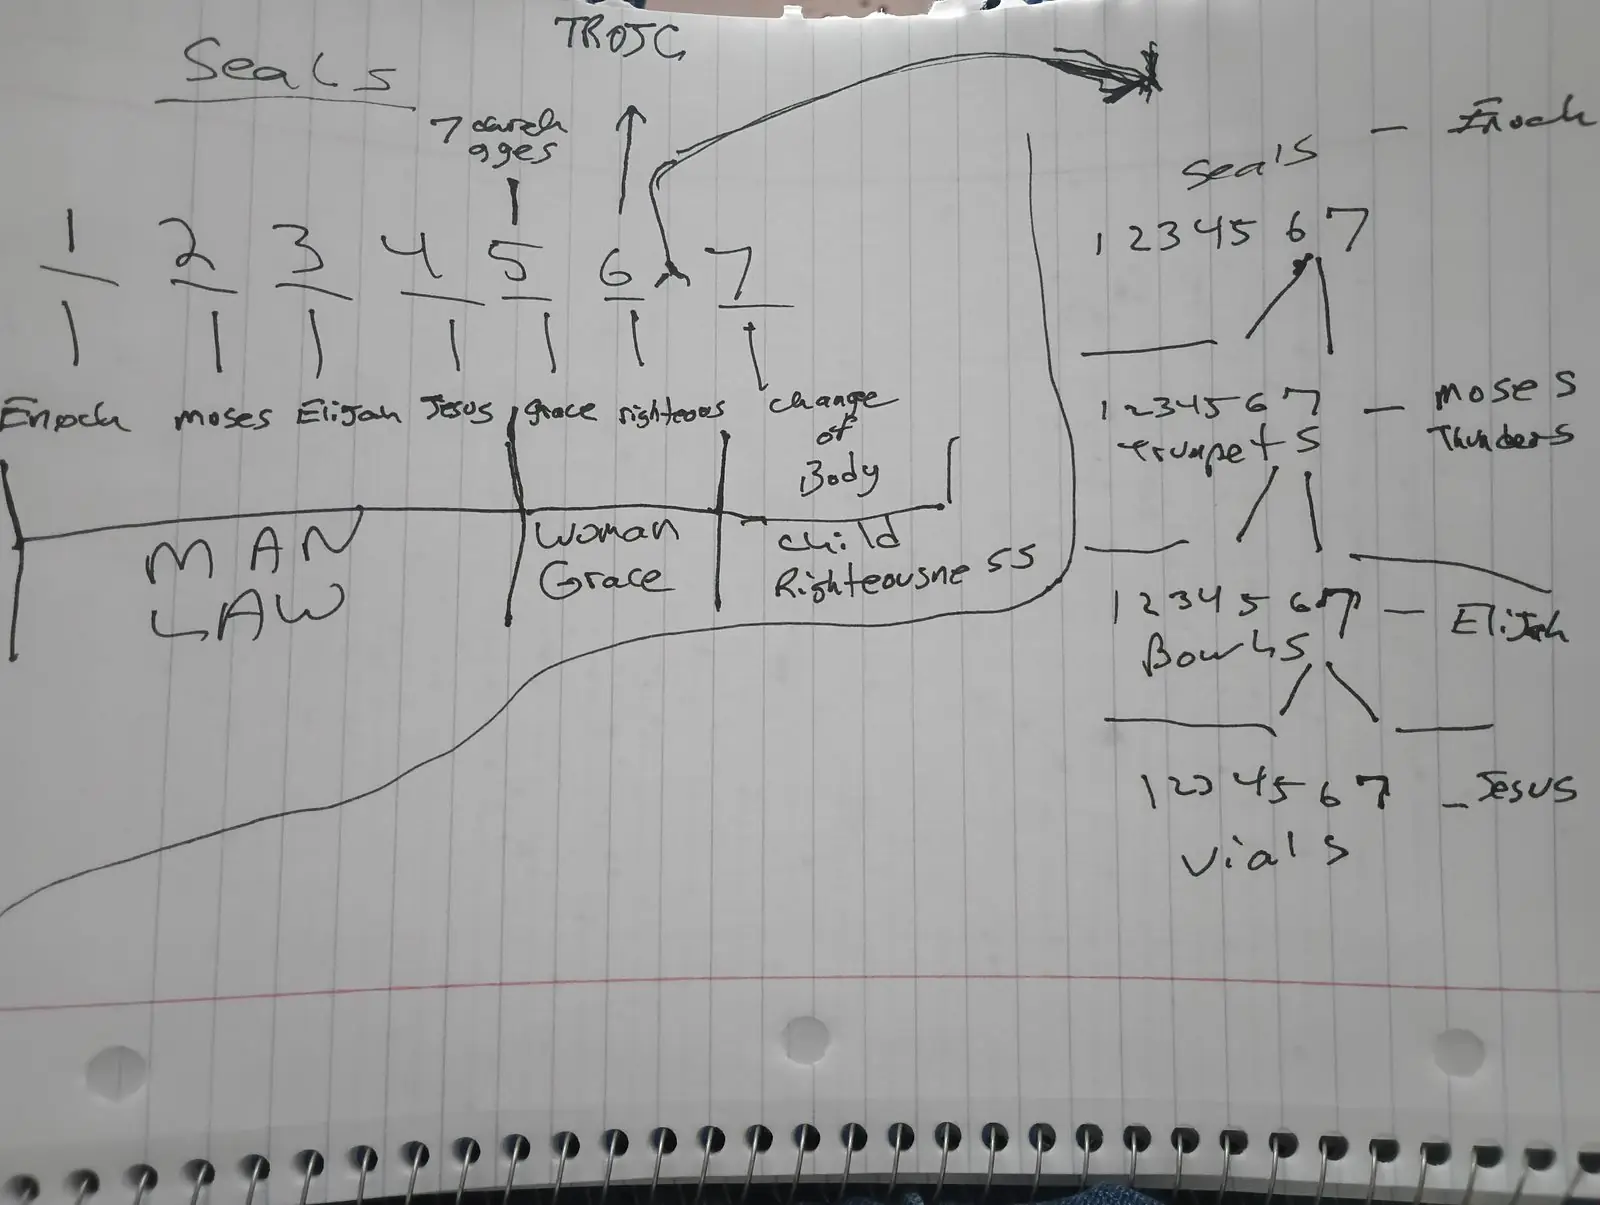 TROJC
Seals
7 church
ages
1 2 3 4 5 6 7
Enoch moses Elijah Jesus grace righteous change
of
Body
MAN
LAW
woman
Grace
child
Righteousness
Seals - Enoch
1 2 3 4 5 6 7
1 2 3 4 5 6 7 - moses
Trumpets Thunders
1 2 3 4 5 6 7 - Elijah
Bowls
1 2 3 4 5 6 7 - Jesus
vials